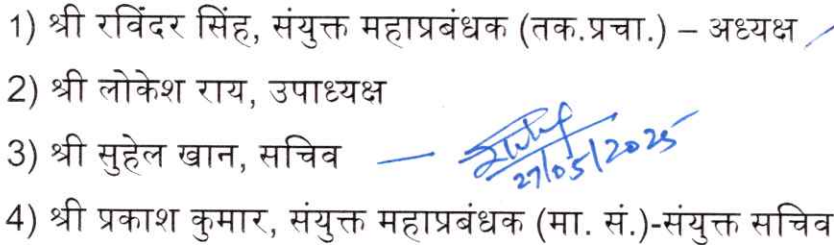 1) श्री रविंदर सिंह, संयुक्त महाप्रबंधक (तक.प्रचा.) – अध्यक्ष
2) श्री लोकेश राय, उपाध्यक्ष
3) श्री सुहेल खान, सचिव –
27/05/2025
4) श्री प्रकाश कुमार, संयुक्त महाप्रबंधक (मा. सं.)-संयुक्त सचिव